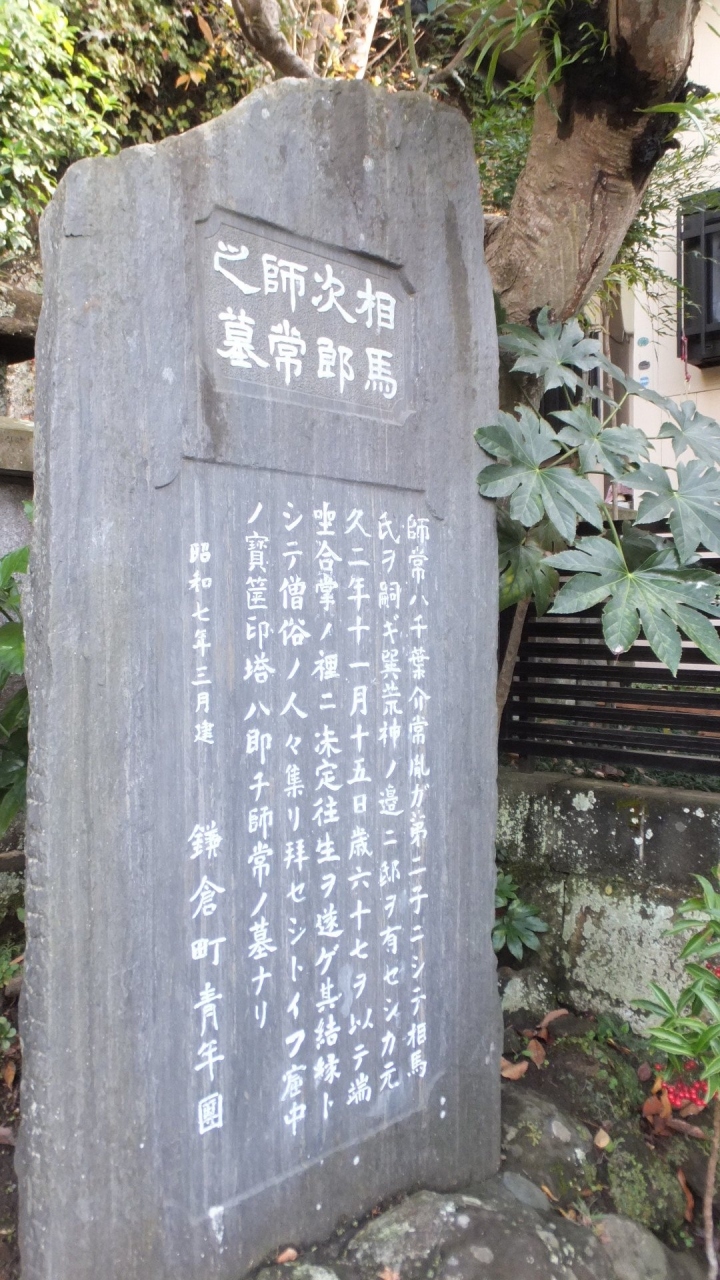 相馬
次郎
師常
之墓
師常ハ千葉介常胤ガ第二子ニシテ相馬
氏ヲ嗣ギ巽荒神ノ邉ニ邸ヲ有セシカ元
久二年十一月十五日歳六十七ヲ以テ端
坐合掌ノ裡ニ决定往生ヲ遂ゲ其結縁ト
シテ僧俗ノ人々集リ拜セシトイフ窟中
ノ寳篋印塔ハ即チ師常ノ墓ナリ
昭和七年三月建 鎌倉町青年團